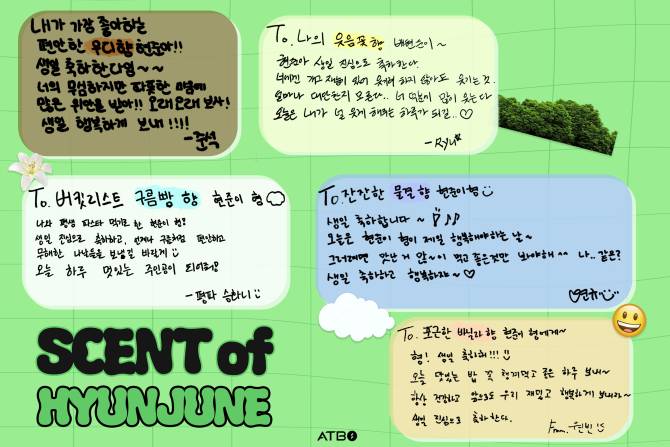 내가 가장 좋아하는
편안한 우디향 현준아!!
생일 축하한다임~~
너의 무심하지만 따뜻한 마음에
많은 위안을 받아!! 오래오래 보자!
생일 행복하게 보내!!!!
-준석
To. 나의 웃음꽃향 배현준이~
현준아 생일 진심으로 축하한다.
오늘은 내가 널 웃게 해주는 하루가 되길..♡
-Ryu
To. 버킷리스트 구름빵 향 현준이 형
나와 평생 파스타 먹기로 한 현준이 형?
생일 진심으로 축하하고, 언제나 구름처럼 편안하고
무해한 나날들을 보냈길 바랄게
오늘 하루 멋있는 주인공이 되어줘!
-평파 승환이
To. 잔잔한 물결향 현준이형
생일 축하합니다~
오늘은 현준이 형이 제일 행복해야하는 날~
그러려면 맛난 거 많~이 먹고 좋은것만 봐야해^^ 나..같은?
생일 축하하고 행복하자~♡
To. 포근한 바닐라 향 현준이 형에게~
형! 생일 축하해!!!
오늘 맛있는 밥 꼭 챙겨먹고 좋은 하루 보내~
항상 건강하고 앞으로도 우리 재밌고 행복하게 보내자~
생일 진심으로 축하한다.
From. 원빈
SCENT of
HYUNJUNE
ATBO